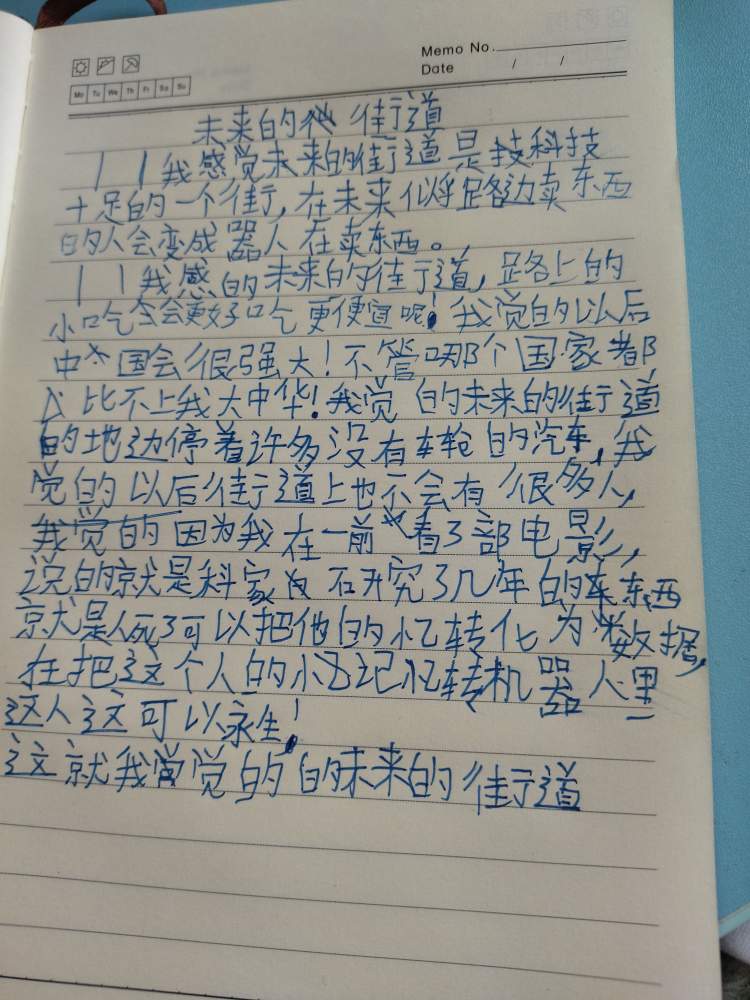 Memo No.
Date / /
Mo Tu We Th Fr Sa Su
未来的 街道
我感觉未来的街道是科技
十足的一个街,在未来似乎路边卖东西
的人会变成器人在卖东西。
我感的未来的街道,路上的
小吃会更好吃更便宜呢!我觉的以后
中国会很强大!不管哪个国家都
比不上我大中华!我觉的未来的街道
的地边停着许多没有车轮的汽车,我
觉的以后街道上也不会有很多人,
我觉的因为我在一前看了部电影,
说的就是科家研究了几年的东西
就是人死了可以把他的忆转化为数据,
在把这个人的记忆转机器人里
这人这可以永生!
这就我觉的的未来的街道